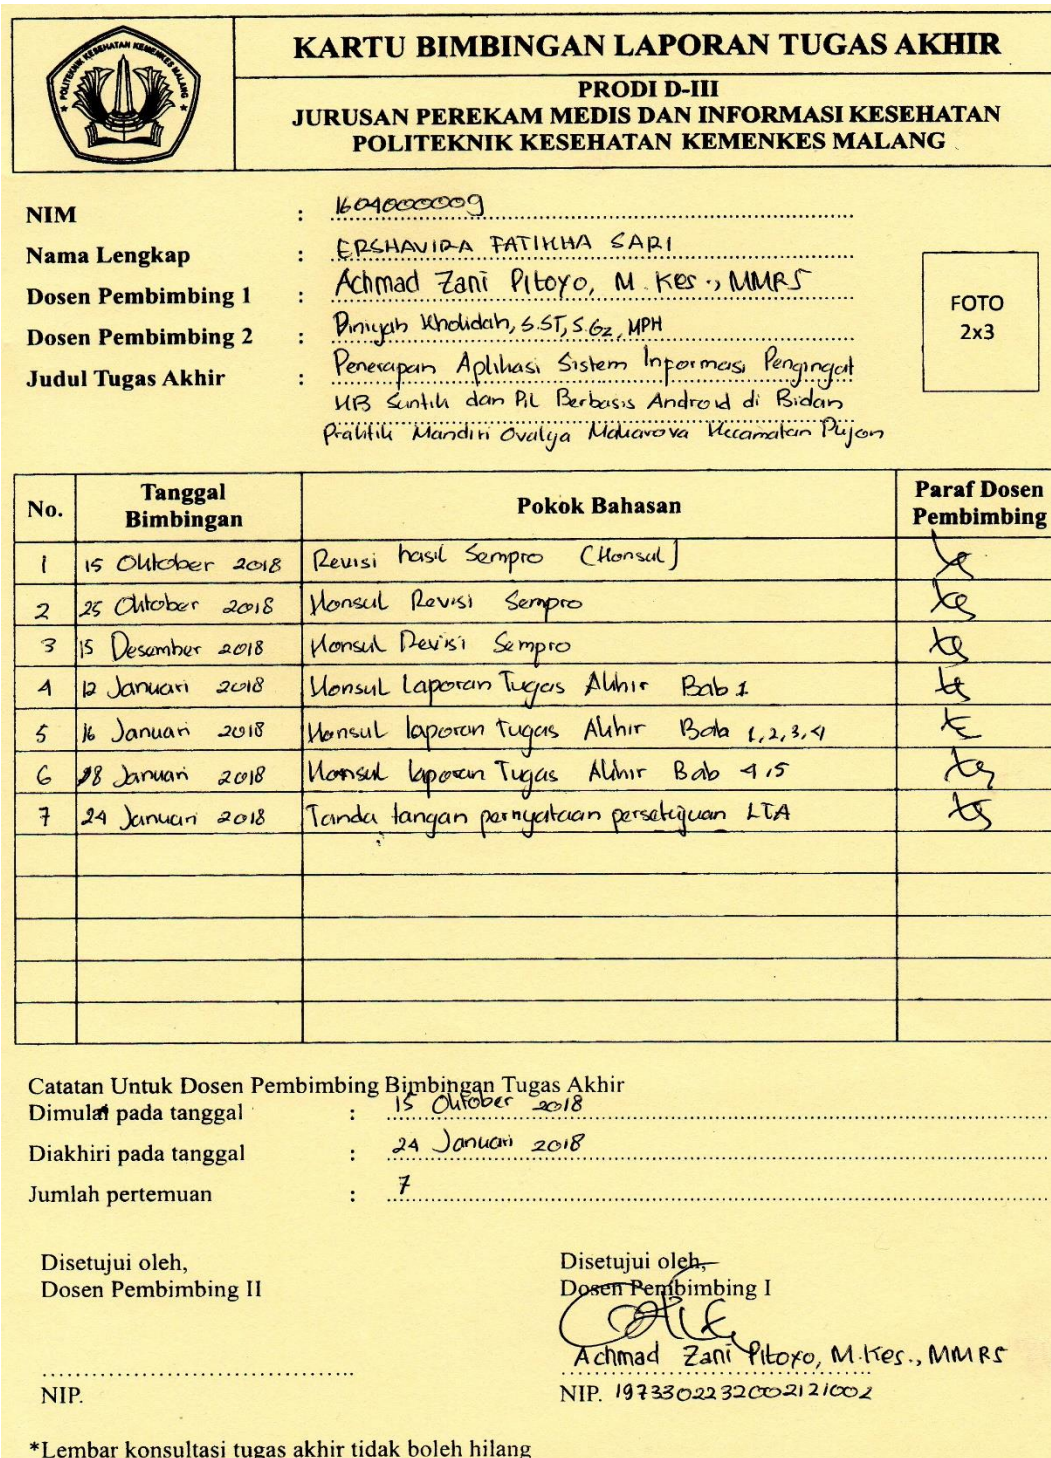 POLITEKNIK KESEHATAN KEMENKES MALANG
KARTU BIMBINGAN LAPORAN TUGAS AKHIR
PRODI D-III
JURUSAN PEREKAM MEDIS DAN INFORMASI KESEHATAN
POLITEKNIK KESEHATAN KEMENKES MALANG
NIM : 1604000009
Nama Lengkap : ERSHAVIRA FATIKHA SARI
Dosen Pembimbing 1 : Achmad Zani Pitoyo, M. Kes., MMRS
Dosen Pembimbing 2 : Diniyah Kholidah, S.ST, S.Gz, MPH
Judul Tugas Akhir : Penerapan Aplikasi Sistem Informasi Pengingat
KB Suntik dan Pil Berbasis Android di Bidan
Praktik Mandiri Ovalya Kecamatan Pujon
FOTO
2x3
No. Tanggal Bimbingan Pokok Bahasan Paraf Dosen Pembimbing
1 15 Oktober 2018 Revisi hasil Sempro (Konsul)
2 25 Oktober 2018 Konsul Revisi Sempro
3 15 Desember 2018 Konsul Revisi Sempro
4 12 Januari 2018 Konsul Laporan Tugas Akhir Bab 1
5 16 Januari 2018 Konsul laporan Tugas Akhir Bab 1,2,3,4
6 18 Januari 2018 Konsul laporan Tugas Akhir Bab 4,5
7 24 Januari 2018 Tanda tangan pernyataan persetujuan LTA
Catatan Untuk Dosen Pembimbing Bimbingan Tugas Akhir
Dimulai pada tanggal : 15 Oktober 2018
Diakhiri pada tanggal : 24 Januari 2018
Jumlah pertemuan : 7
Disetujui oleh, Disetujui oleh,
Dosen Pembimbing II Dosen Pembimbing I
Achmad Zani Pitoyo, M.Kes., MMRS
NIP. NIP. 1973302232002121002
*Lembar konsultasi tugas akhir tidak boleh hilang